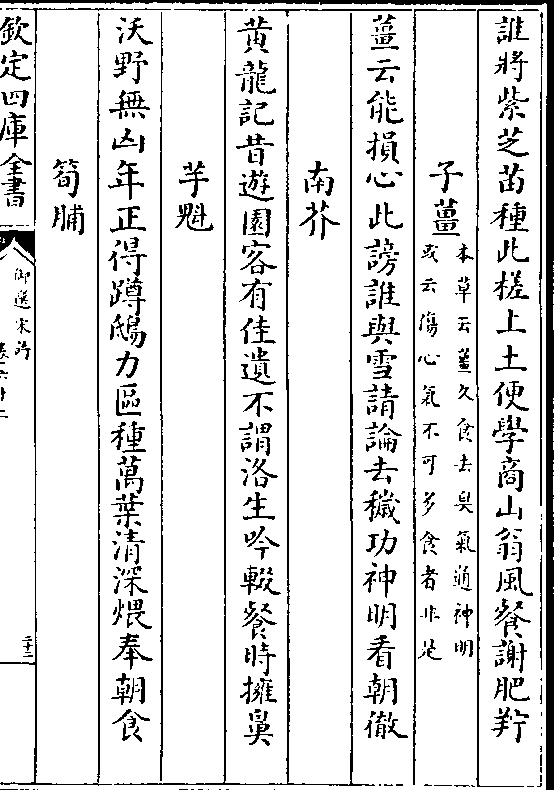 誰將紫芝苗種此槎上土便學商山翁風餐謝肥羜
子薑
本草云薑久食去臭氣通神明
或云傷心氣不可多食者非是
薑云能損心此謗誰與雪請論去穢功神明看朝徹
南芥
黄龍記昔遊園客有佳遺不謂洛生吟輟餐時擁鼻
芋魁
沃野無凶年正得蹲鴟力區種萬葉清深煨奉朝食
筍脯
欽定四庫全書
御選宋詩
卷六十二
二十二